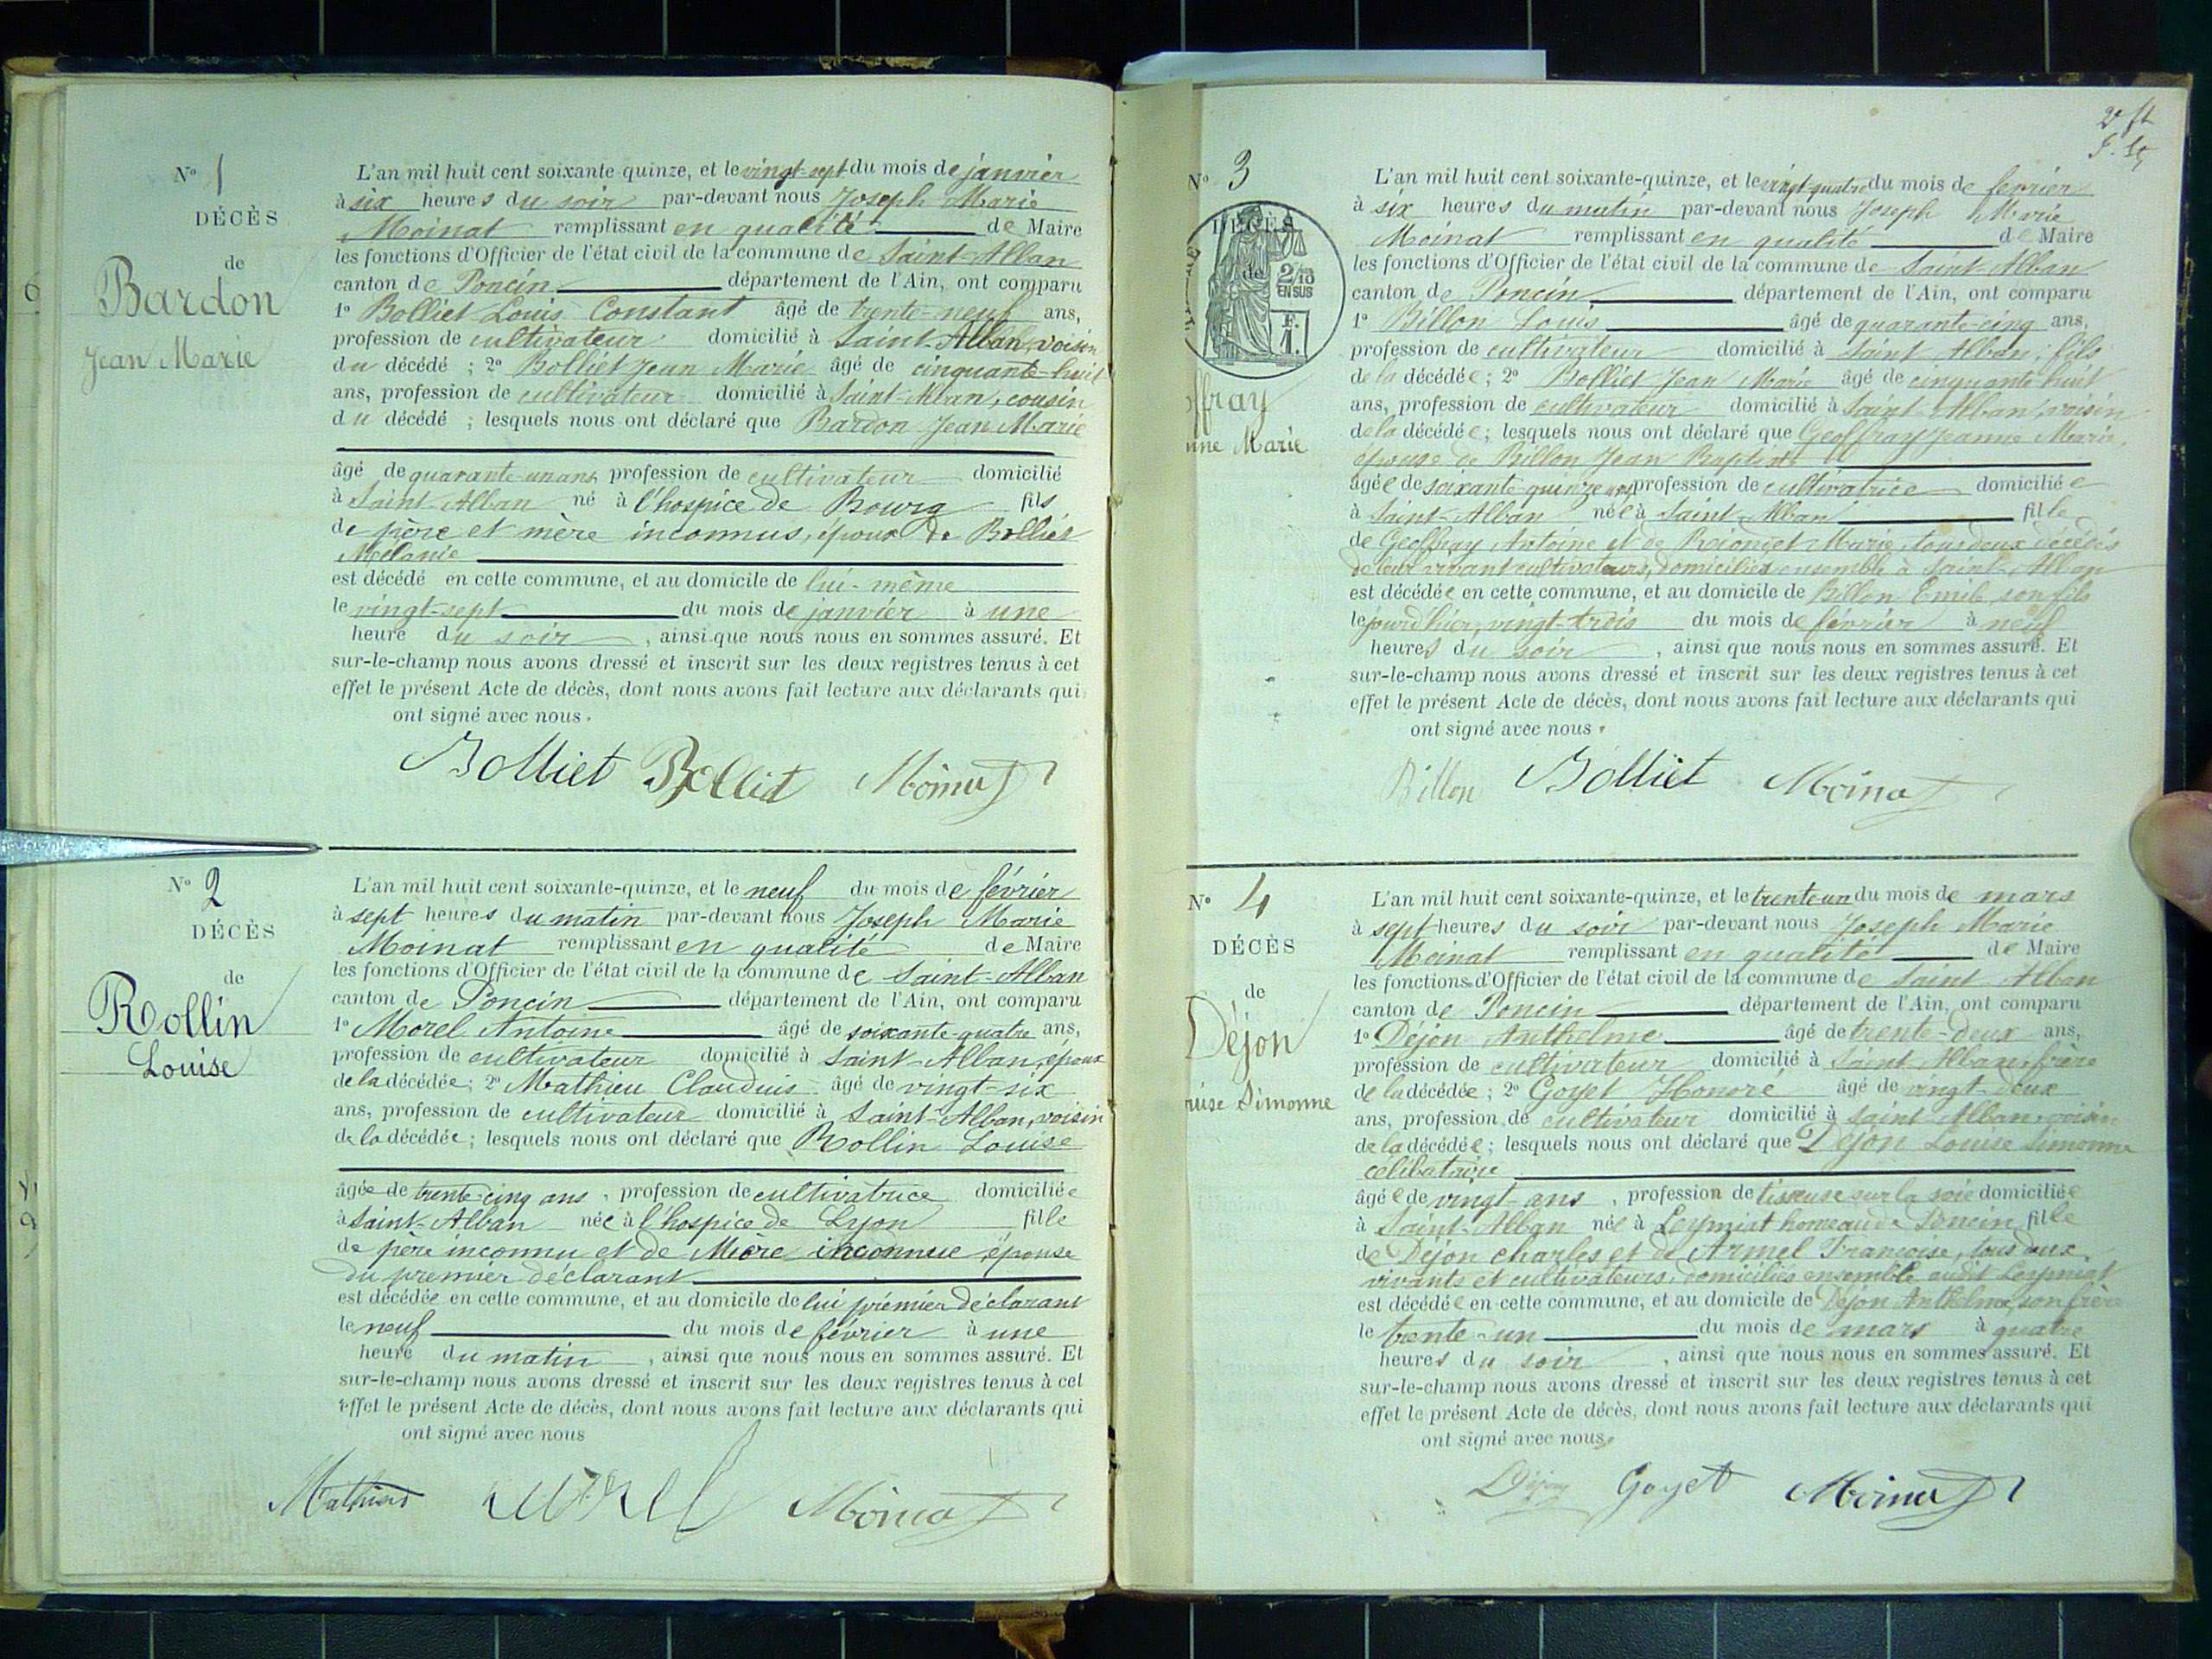 N° 1
DÉCÈS
de
Bardon
Jean Marie
L'an mil huit cent soixante-quinze, et le vingt-sept du mois de janvier
à six heures du soir par-devant nous Joseph Marie
Moinat remplissant en qualité de Maire
les fonctions d'Officier de l'état civil de la commune de Saint-Alban
canton de Poncin département de l'Ain, ont comparu
1° Bolliet Louis Constant âgé de trente-neuf ans,
profession de cultivateur domicilié à Saint-Alban, voisin
du décédé ; 2° Bolliet Jean Marie âgé de cinquante-huit
ans, profession de cultivateur domicilié à Saint-Alban, cousin
du décédé ; lesquels nous ont déclaré que Bardon Jean Marie
âgé de quarante-un ans profession de cultivateur domicilié
à Saint-Alban né à l'hospice de Bourg fils
de père et mère inconnus, époux de Bolliet
Mélanie
est décédé en cette commune, et au domicile de lui-même
le vingt-sept du mois de janvier à une
heure du soir, ainsi que nous nous en sommes assuré. Et
sur-le-champ nous avons dressé et inscrit sur les deux registres tenus à cet
effet le présent Acte de décès, dont nous avons fait lecture aux déclarants qui
ont signé avec nous.
Bolliet Bolliet Moinat
N° 2
DÉCÈS
de
Rollin
Louise
L'an mil huit cent soixante-quinze, et le neuf du mois de février
à sept heures du matin par-devant nous Joseph Marie
Moinat remplissant en qualité de Maire
les fonctions d'Officier de l'état civil de la commune de Saint-Alban
canton de Poncin département de l'Ain, ont comparu
1° Morel Antoine âgé de soixante-quatre ans,
profession de cultivateur domicilié à Saint-Alban, époux
de la décédée ; 2° Mathieu Claudius âgé de vingt-six
ans, profession de cultivateur domicilié à Saint-Alban, voisin
de la décédée ; lesquels nous ont déclaré que Rollin Louise
âgée de trente-cinq ans, profession de cultivatrice domiciliée
à Saint-Alban née à l'hospice de Lyon fille
de père inconnu et de Mère inconnue, épouse
du premier déclarant
est décédée en cette commune, et au domicile de lui premier déclarant
le neuf du mois de février à une
heure du matin, ainsi que nous nous en sommes assuré. Et
sur-le-champ nous avons dressé et inscrit sur les deux registres tenus à cet
effet le présent Acte de décès, dont nous avons fait lecture aux déclarants qui
ont signé avec nous
Mathieu Morel Moinat
N° 3
DÉCÈS
de
2/10
EN SUS
F.
1.
offray
nne Marie
L'an mil huit cent soixante-quinze, et le vingt-quatre du mois de février
à six heures du matin par-devant nous Joseph Marie
Moinat remplissant en qualité de Maire
les fonctions d'Officier de l'état civil de la commune de Saint-Alban
canton de Poncin département de l'Ain, ont comparu
1° Billon Louis âgé de quarante-cinq ans,
profession de cultivateur domicilié à Saint-Alban, fils
de la décédée ; 2° Bolliet Jean Marie âgé de cinquante-huit
ans, profession de cultivateur domicilié à Saint-Alban, voisin
de la décédée ; lesquels nous ont déclaré que Geoffray Jeanne Marie,
épouse de Billon Jean Baptiste
âgée de soixante-quinze ans profession de cultivatrice domiciliée
à Saint-Alban née à Saint-Alban fille
de Geoffray Antoine et de Marie, tous deux décédés
de leur vivant cultivateurs, domiciliés ensemble à Saint-Alban
est décédée en cette commune, et au domicile de Billon Emile, son fils
le jourd'hier, vingt-trois du mois de février à neuf
heures du soir, ainsi que nous nous en sommes assuré. Et
sur-le-champ nous avons dressé et inscrit sur les deux registres tenus à cet
effet le présent Acte de décès, dont nous avons fait lecture aux déclarants qui
ont signé avec nous.
Billon Bolliet Moinat
N° 4
DÉCÈS
de
Déjon
uise Simonne
L'an mil huit cent soixante-quinze, et le trente un du mois de mars
à sept heures du soir par-devant nous Joseph Marie
Moinat remplissant en qualité de Maire
les fonctions d'Officier de l'état civil de la commune de Saint Alban
canton de Poncin département de l'Ain, ont comparu
1° Déjon Anthelme âgé de trente-deux ans,
profession de cultivateur domicilié à Saint-Alban, frère
de la décédée ; 2° Goyet Honoré âgé de vingt-deux
ans, profession de cultivateur domicilié à Saint-Alban, voisin
de la décédée ; lesquels nous ont déclaré que Déjon Louise Simonne
célibataire
âgée de vingt ans, profession de tisseuse sur la soie domiciliée
à Saint-Alban née à Leymiat hameau de Poncin fille
de Déjon Charles et de Armel Françoise, tous deux
vivants et cultivateurs, domiciliés ensemble audit Leymiat
est décédée en cette commune, et au domicile de Déjon Anthelme, son frère
le trente-un du mois de mars à quatre
heures du soir, ainsi que nous nous en sommes assuré. Et
sur-le-champ nous avons dressé et inscrit sur les deux registres tenus à cet
effet le présent Acte de décès, dont nous avons fait lecture aux déclarants qui
ont signé avec nous.
Déjon Goyet Moinat